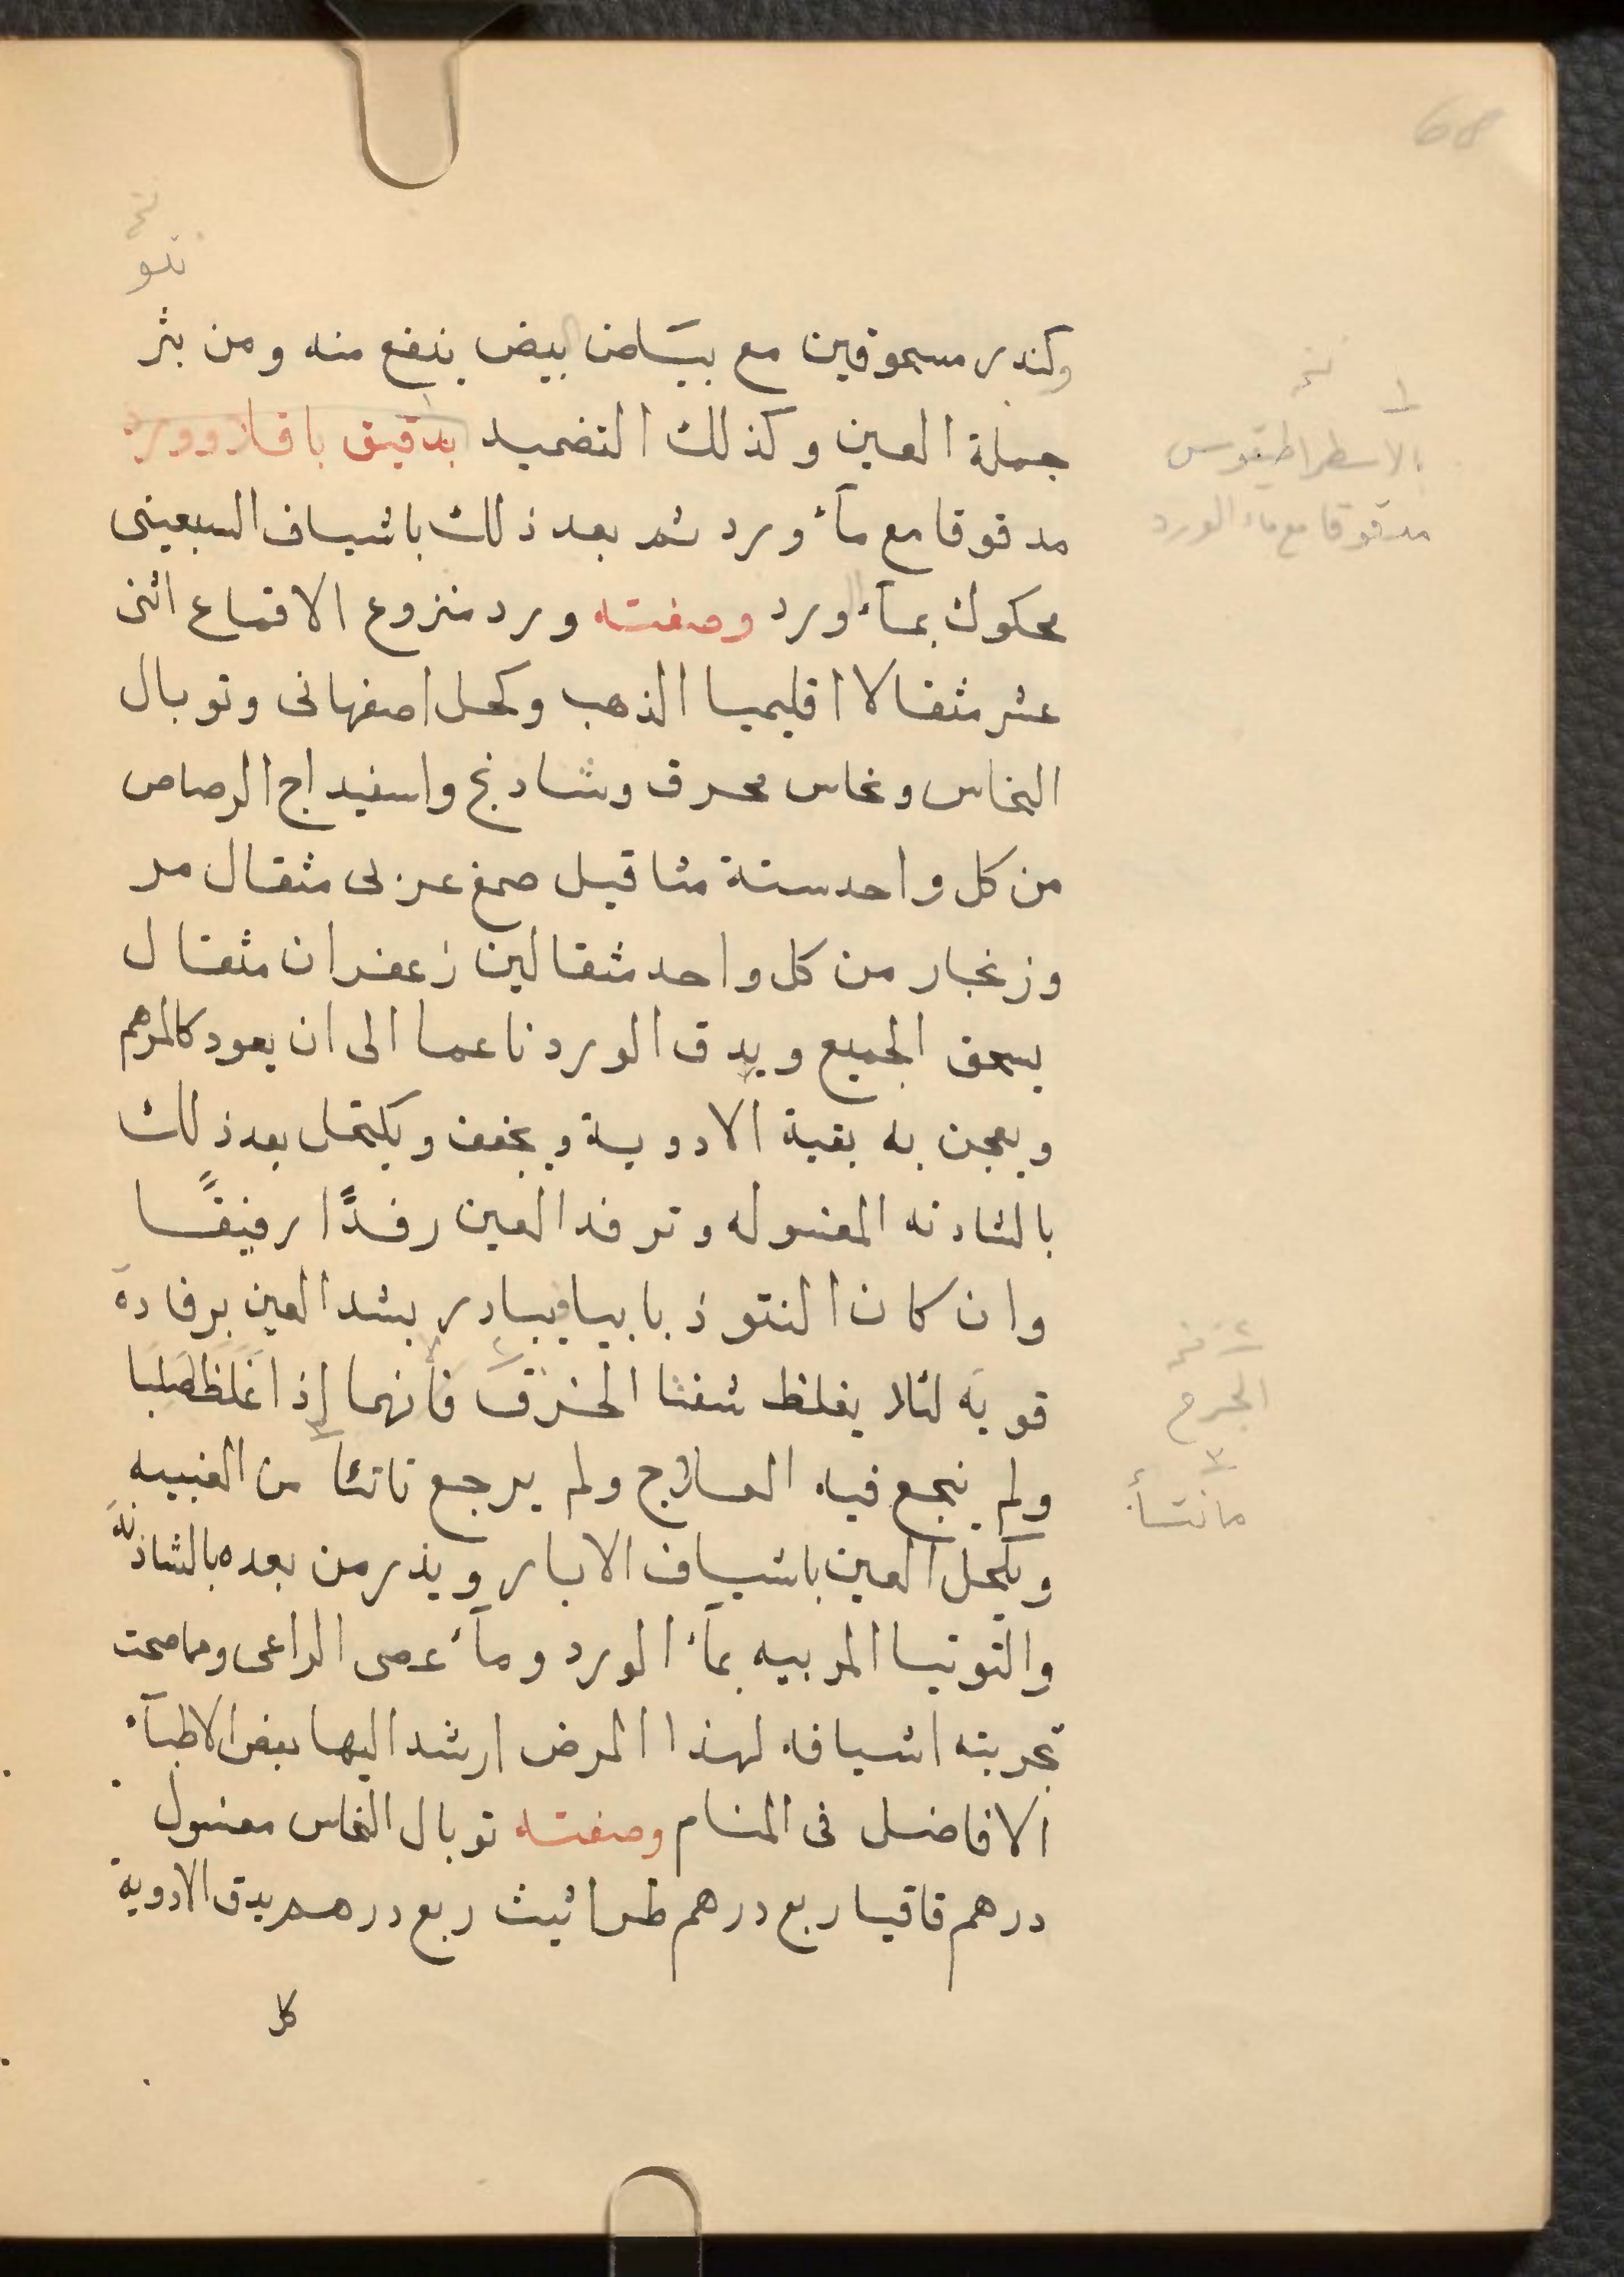 68
نخ
نتو
وكندر مسحوقين مع بياض البيض ينفع منه ومن بثر
جملة العين وكذلك التضميد بدقيق باقلا وورد
مدقوقا مع مآء ورد ثم بعد ذلك باشياف السبعينى
محكوك بمآء الورد وصفته ورد منزوع الاقماع اثنى
عشر مثقالا اقليميا الذهب وكحل اصفهانى وتوبال
النحاس ونحاس محرق وشادنج واسفيداج الرصاص
من كل واحد ستة مثاقيل صمغ عربى مثقال مر
وزنجار من كل واحد مثقالين زعفران مثقال
يسحق الجميع ويدق الورد ناعما الى ان يعود كالمرهم
ويعجن به بقية الادوية ويجفف ويكتحل بعد ذلك
بالشادنه المغسوله وترفد العين رفدًا رفيقًا
وان كان النتو ذبابيا فيبادر بشد العين برفادة
قويه لئلا يغلظ شفتا الخرق فأنهما إذا غلظا صلبا
ولم ينجع فيه العلاج ولم يرجع ناتئا من العنبيه
ويكحل العين باشياف الابار ويذر من بعده بالشاذنه
والتوتيا المربيه بمآء الورد ومآء عصى الراعى ومما صحت
تجربته اشيافه لهذا المرض ارشد اليها بعض الاطبآء
الافاضل فى المنام وصفته توبال النحاس مغسول
درهم قاقيا ربع درهم طراثيث ربع درهم يدق الادوية
كل
١ نخ
الاسطراطيقوس
مدقوقا مع ماء الورد
٢ نخ
الجرح
٣
ما نتأ